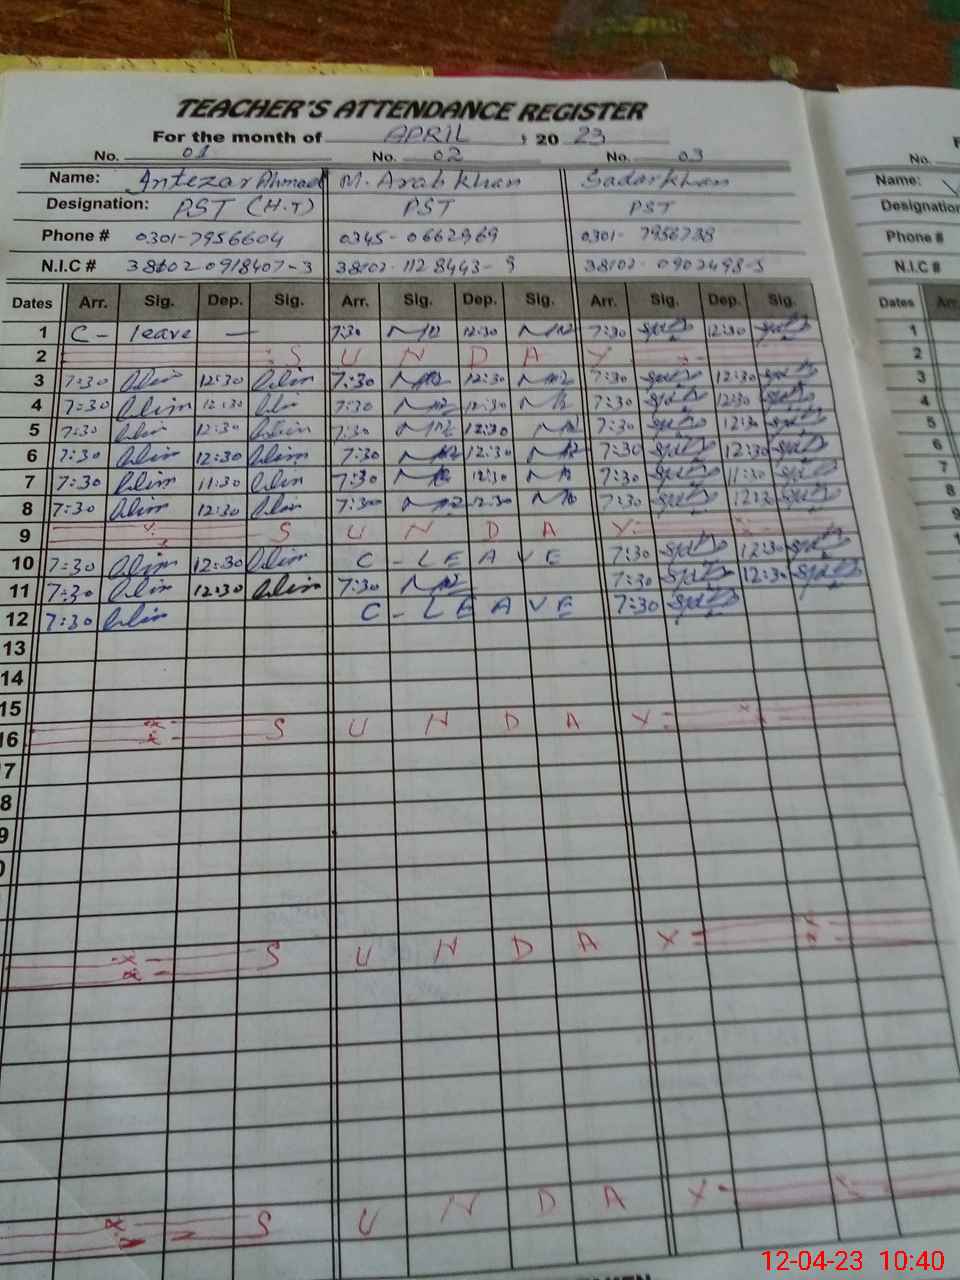 TEACHER'S ATTENDANCE REGISTER
For the month of APRIL, 20 23
No. 01 No. 02 No. 03
Name: Intezar Ahmad M. Arab Khan Sadar Khan
Designation: PST (H.T) PST PST
Phone # 0301-7956604 0345-0662969 0301-7956738
N.I.C # 38102 0918407-3 38102-1128443-9 38102-0902498-5
Dates Arr. Sig. Dep. Sig. Arr. Sig. Dep. Sig. Arr. Sig. Dep. Sig.
1 C - leave — 7:30 12:30 7:30 12:30
2 S U N D A Y
3 7:30 12:30 7:30 12:30 7:30 12:30
4 7:30 12:30 7:30 12:30 7:30 12:30
5 7:30 12:30 7:30 12:30 7:30 12:30
6 7:30 12:30 7:30 12:30 7:30 12:30
7 7:30 11:30 7:30 12:30 7:30 11:30
8 7:30 12:30 7:30 12:30 7:30 12:30
9 S U N D A Y
10 7:30 12:30 C - LEAVE 7:30 12:30
11 7:30 12:30 7:30 7:30 12:30
12 7:30 C - LEAVE 7:30
13
14
15
16 S U N D A Y
7
8
9
S U N D A Y
S U N D A Y
No.
Name:
Designation
Phone #
N.I.C #
Dates Arr
1
2
3
4
5
6
7
8
9
12-04-23 10:40